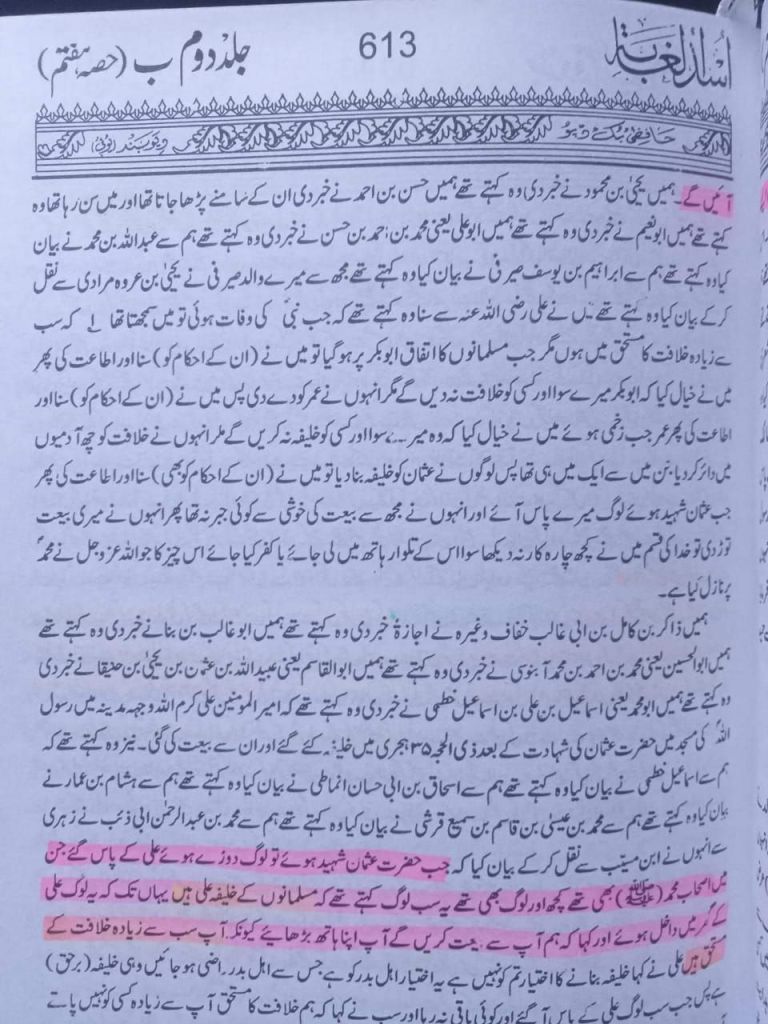 اسد الغابۃ
613
جلد دوم ب (حصہ ہفتم)
حافظی بک ڈپو
دیوبند یوپی
آئیں گے۔ ہمیں یحییٰ بن محمود نے خبر دی وہ کہتے تھے ہمیں حسن بن احمد نے خبر دی ان کے سامنے پڑھا جاتا تھا اور میں سن رہا تھا وہ
کہتے تھے ہمیں ابونعیم نے خبر دی وہ کہتے تھے ہمیں ابو علی یعنی محمد بن احمد بن حسن نے خبر دی وہ کہتے تھے ہم سے عبداللہ بن محمد نے بیان
کیا وہ کہتے تھے ہم سے ابراہیم بن یوسف صیرفی نے بیان کیا وہ کہتے تھے مجھ سے میرے والد صیرفی نے یحییٰ بن عروہ مرادی سے نقل
کر کے بیان کیا وہ کہتے تھے میں نے علی رضی اللہ عنہ سے سنا وہ کہتے تھے کہ جب نبیؐ کی وفات ہوئی تو میں سمجھتا تھا کہ سب
سے زیادہ خلافت کا مستحق میں ہوں مگر جب مسلمانوں کا اتفاق ابوبکر پر ہو گیا تو میں نے (ان کے احکام کو) سنا اور اطاعت کی پھر
میں نے خیال کیا کہ ابوبکر میرے سوا اور کسی کو خلافت نہ دیں گے مگر انہوں نے عمر کو دے دی پس میں نے (ان کے احکام کو) سنا اور
اطاعت کی پھر عمر جب زخمی ہوئے میں نے خیال کیا کہ وہ میرے سوا اور کسی کو خلیفہ نہ کریں گے مگر انہوں نے خلافت کو چھ آدمیوں
میں دائر کر دیا جن میں سے ایک میں ہی تھا پس لوگوں نے عثمان کو خلیفہ بنا دیا تو میں نے (ان کے احکام کو بھی) سنا اور اطاعت کی پھر
جب عثمان شہید ہوئے لوگ میرے پاس آئے اور انہوں نے مجھ سے بیعت کی خوشی سے کوئی جبر نہ تھا پھر انہوں نے میری بیعت
توڑ دی تو خدا کی قسم میں نے کچھ چارہ کار نہ دیکھا سوا اس کے تلوار ہاتھ میں لی جائے یا کفر کیا جائے اس چیز کا جو اللہ عزوجل نے محمدؐ
پر نازل کیا ہے۔
ہمیں ذاکر بن کامل بن ابی غالب خفاف وغیرہ نے اجازۃً خبر دی وہ کہتے تھے ہمیں ابو غالب بن بنا نے خبر دی وہ کہتے تھے
ہمیں ابوالحسین یعنی محمد بن احمد بن محمد آبنوسی نے خبر دی وہ کہتے تھے ہمیں ابوالقاسم یعنی عبیداللہ بن عثمان بن یحییٰ بن حنیقا نے خبر دی
وہ کہتے تھے ہمیں ابو محمد یعنی اسماعیل بن علی بن اسماعیل خطمی نے خبر دی وہ کہتے تھے کہ امیر المومنین علی کرم اللہ وجہہ مدینہ میں رسول
اللہؐ کی مسجد میں حضرت عثمان کی شہادت کے بعد ذی الحجہ ۳۵ ہجری میں خلیفہ کئے گئے اور ان سے بیعت کی گئی۔ نیز وہ کہتے تھے کہ
ہم سے اسماعیل خطمی نے بیان کیا وہ کہتے تھے ہم سے اسحاق بن ابی حسان انماطی نے بیان کیا وہ کہتے تھے ہم سے ہشام بن عمار نے
بیان کیا وہ کہتے تھے ہم سے محمد بن عیسیٰ بن قاسم بن سمیع قرشی نے بیان کیا وہ کہتے تھے ہم سے محمد بن عبدالرحمٰن ابی ذئب نے زہری
سے انہوں نے ابن مسیب سے نقل کر کے بیان کیا کہ جب حضرت عثمان شہید ہوئے تو لوگ دوڑے ہوئے علی کے پاس گئے جن
میں اصحاب محمد (ﷺ) بھی تھے کچھ اور لوگ بھی تھے یہ سب لوگ کہتے تھے کہ مسلمانوں کے خلیفہ علی ہیں یہاں تک کہ یہ لوگ علی
کے گھر میں داخل ہوئے اور کہا کہ ہم آپ سے بیعت کریں گے آپ اپنا ہاتھ بڑھائیے کیونکہ آپ سب سے زیادہ خلافت کے
مستحق ہیں علی نے کہا خلیفہ بنانے کا اختیار تم کو نہیں ہے یہ اختیار اہل بدر کو ہے جس سے اہل بدر راضی ہو جائیں وہی خلیفہ (برحق)
ہے پس جب سب لوگ علی کے پاس آ گئے اور کوئی باقی نہ رہا اور سب نے کہا کہ ہم خلافت کا مستحق آپ سے زیادہ کسی کو نہیں پاتے